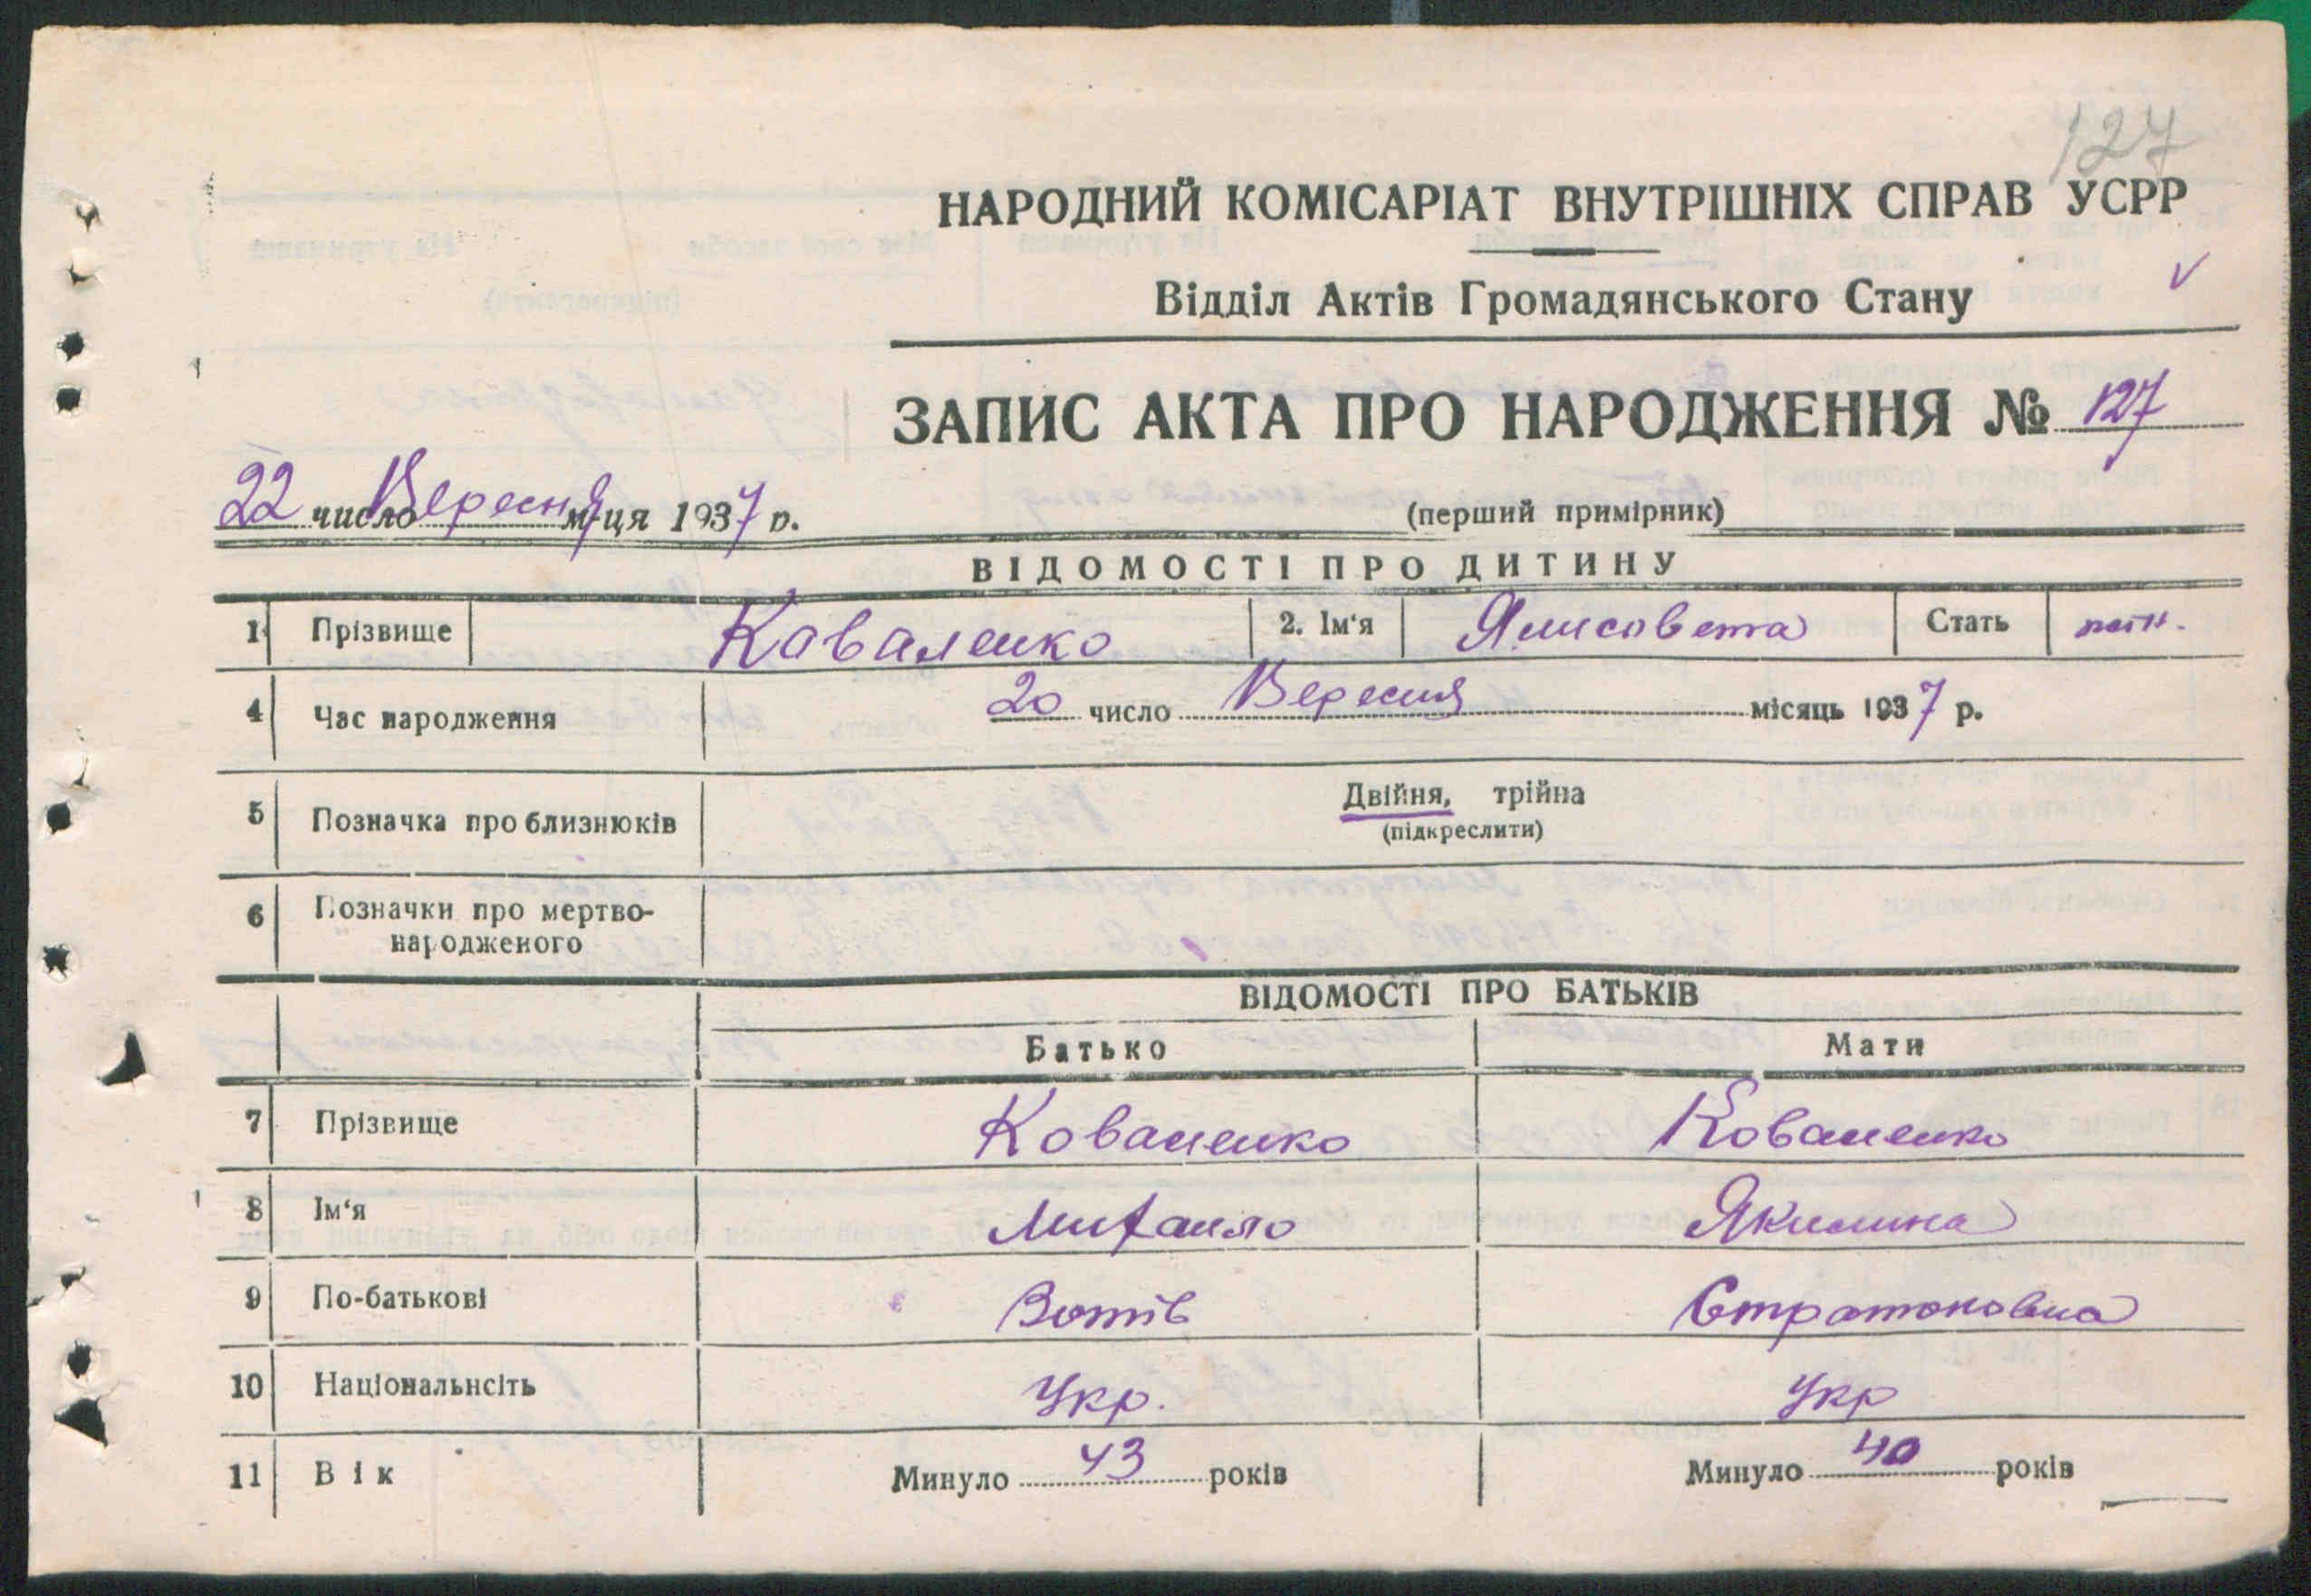 127
НАРОДНИЙ КОМІСАРІАТ ВНУТРІШНІХ СПРАВ УСРР
Відділ Актів Громадянського Стану
ЗАПИС АКТА ПРО НАРОДЖЕННЯ № 127
22 число Вересня м-ця 1937 р.
(перший примірник)
ВІДОМОСТІ ПРО ДИТИНУ
1 Прізвище Коваленко 2. Ім'я Ялисовета Стать
4 Час народження 20 число Вересня місяць 1937 р.
5 Позначка про близнюків Двійня, трійна
(підкреслити)
6 Позначки про мертво-
народженого
ВІДОМОСТІ ПРО БАТЬКІВ
Батько Мати
7 Прізвище Коваленко Коваленко
8 Ім'я Михаило Якилина
9 По-батькові Зотів Стратоновна
10 Національнсіть Укр. Укр
11 Вік Минуло 43 років Минуло 40 років